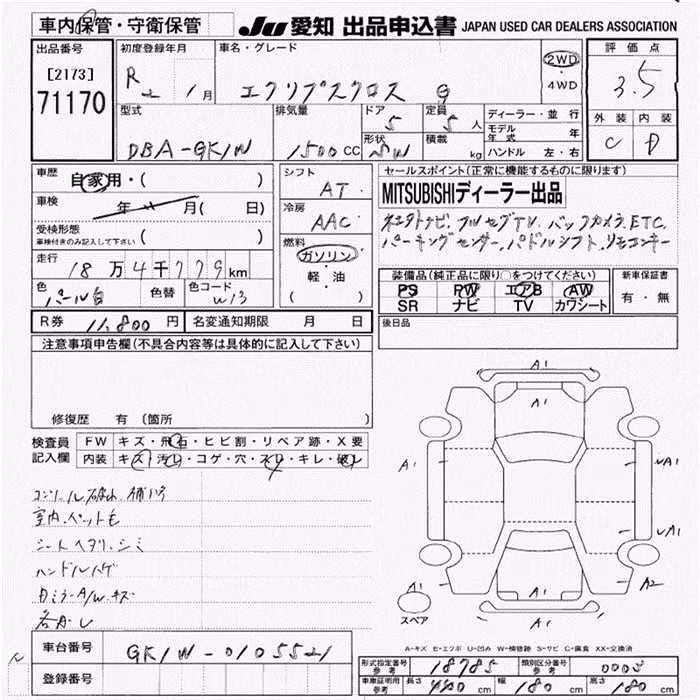 車内保管・守衛保管
JU 愛知 出品申込書 JAPAN USED CAR DEALERS ASSOCIATION
出品番号
[2173]
71170
初度登録年月
R 2 1月
車名・グレード
エクリプスクロス G
2WD
4WD
評価点
3.5
型式
DBA-GK1W
排気量
1500CC
ドア
5
定員
5人
形状
SW
積載
kg
ディーラー・並行
モデル年式 年
ハンドル 左・右
外装 内装
C D
車歴
自家用・( )
車検
年 月( 日)
受検形態
車検付きのみ記入して下さい ( )
走行
18万4千779km
色
パール白
色替
色コード
W13
シフト
AT
冷房
AAC
燃料
ガソリン
軽・油
( )
セールスポイント(正常に機能するものに限ります)
MITSUBISHIディーラー出品
ナビ.フルセグTV.バックカメラ.ETC.
パーキングセンサー.パドルシフト.リモコンキー
装備品(純正品に限り○をつけてください)
PS PW エアB AW
SR ナビ TV カワシート
新車保証書
有・無
R券 11,800円
名変通知期限 月 日
後日品
注意事項申告欄(不具合内容等は具体的に記入して下さい)
修復歴 有(箇所 )
検査員記入欄
FW キズ・飛石・ヒビ割・リペア跡・X要
内装 キズ・汚レ・コゲ・穴・スレ・キレ・破レ
コンソール破れ補修
室内.ペット毛
シートヘタリ.シミ
ハンドルハゲ
ミラーA/W.キズ
A1
A1
A1
A1
A1
A1
A1
A2
A1
A1
スペア
A-キズ E-エクボ U-凹み W-補修跡 S-サビ C-腐食 XX-交換済
車台番号
GK1W-0105521
登録番号
形式指定番号 参考 18785
類別区分番号 参考 0003
車庫証明用 参考 長さ 440cm 幅 180cm 高さ 180cm